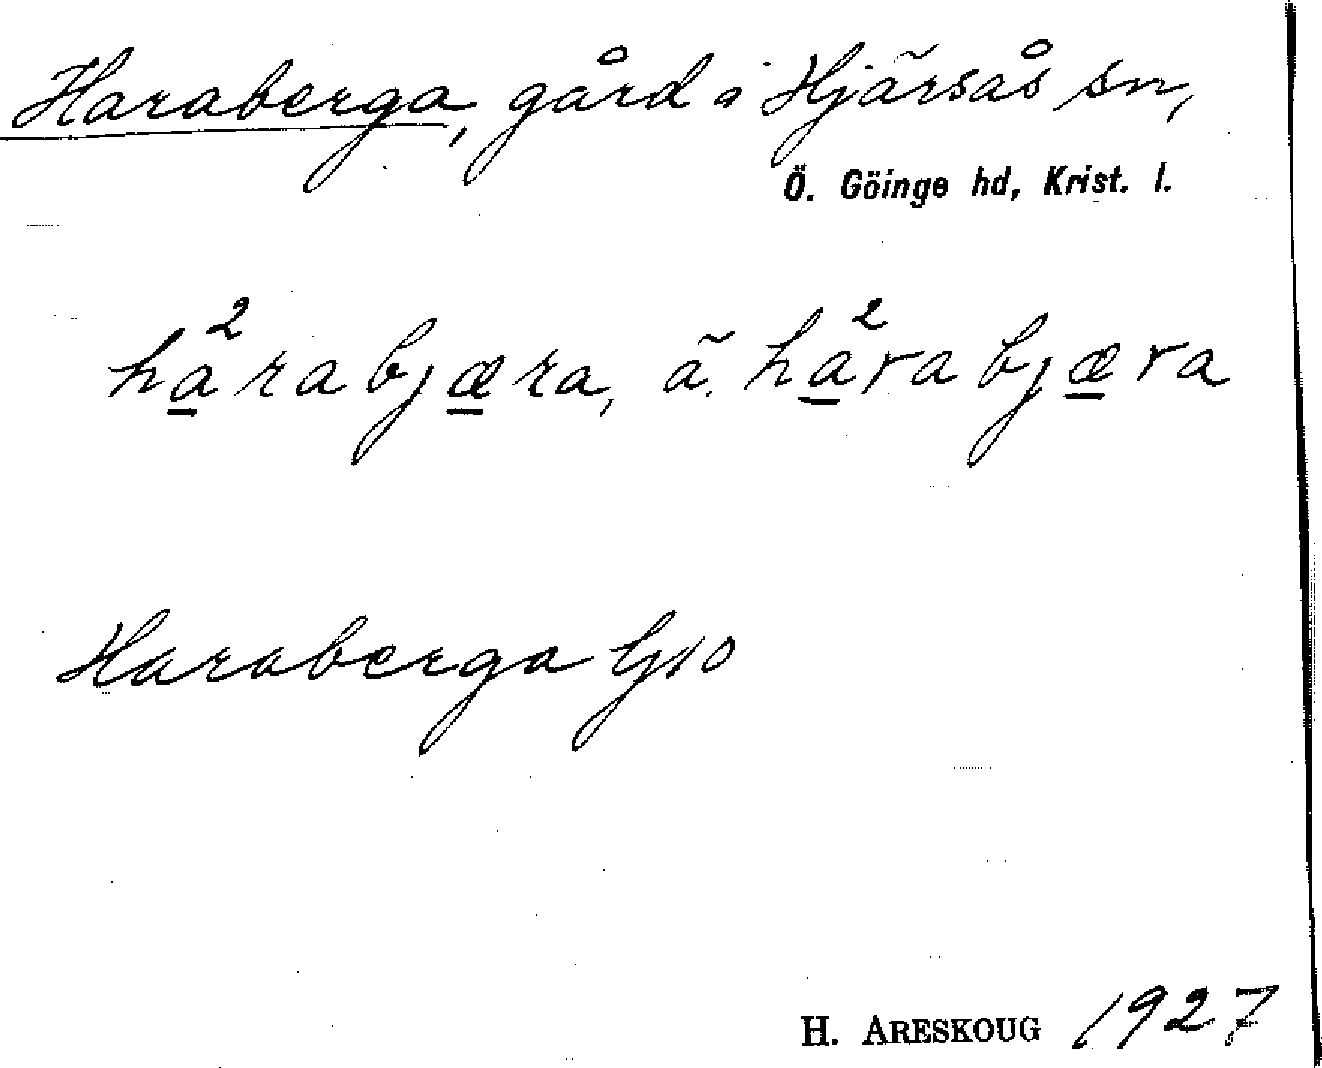 Haraberga, gård i Hjärsås sn,
Ö. Göinge hd, Krist. l.
ha²rabjæra, ä. ha²rabjæra
Haraberga GJ10
H. ARESKOUG 1927